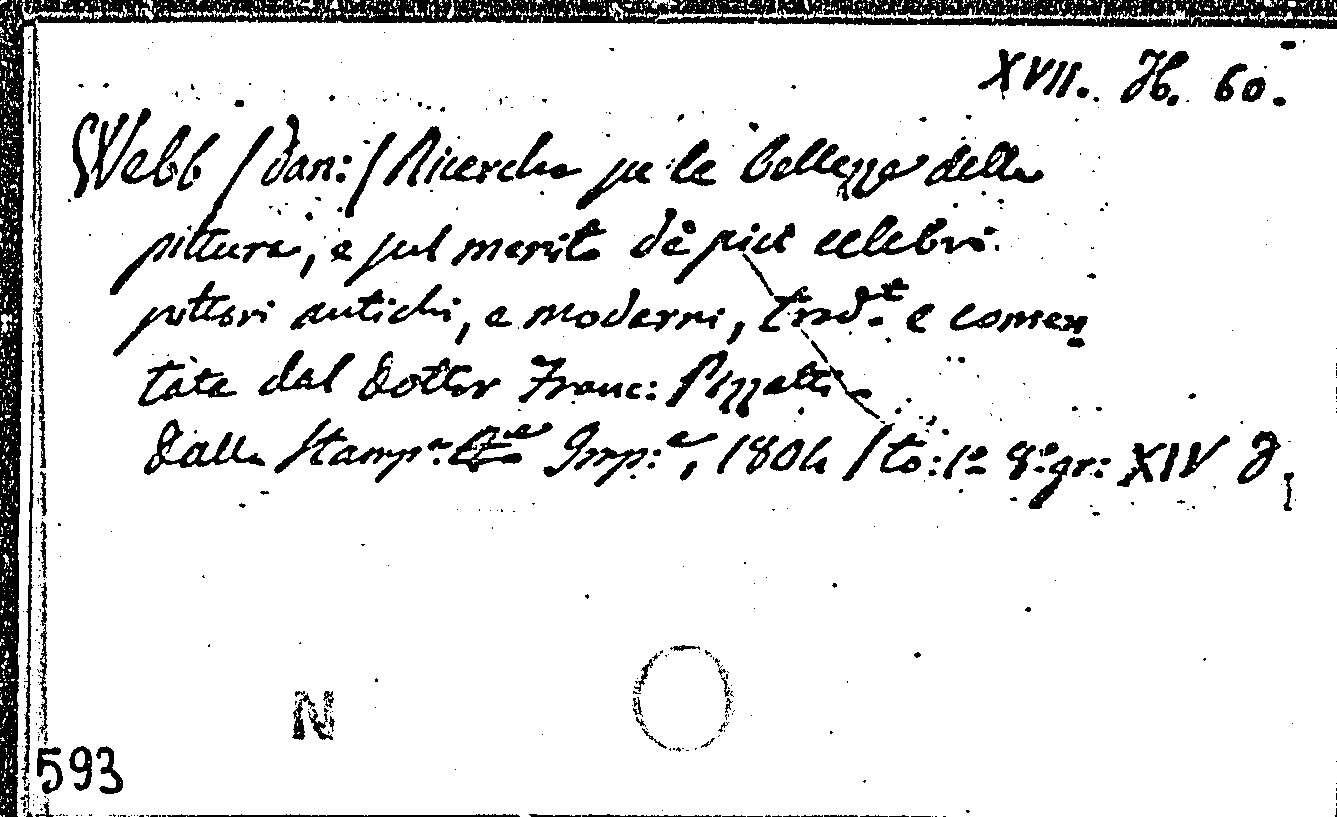 XVII. H. 60.
Webb /Dan:/ Ricerche su le bellezze della
pittura, e sul merito dè più celebri
pittori antichi, e moderni, trad.t e comen
tate dal Dottor Franc: Pizzetti.
Dalla Stamp.a Imp:a, 1804 / to: 1.o 8.o gr: XIV J
N
593